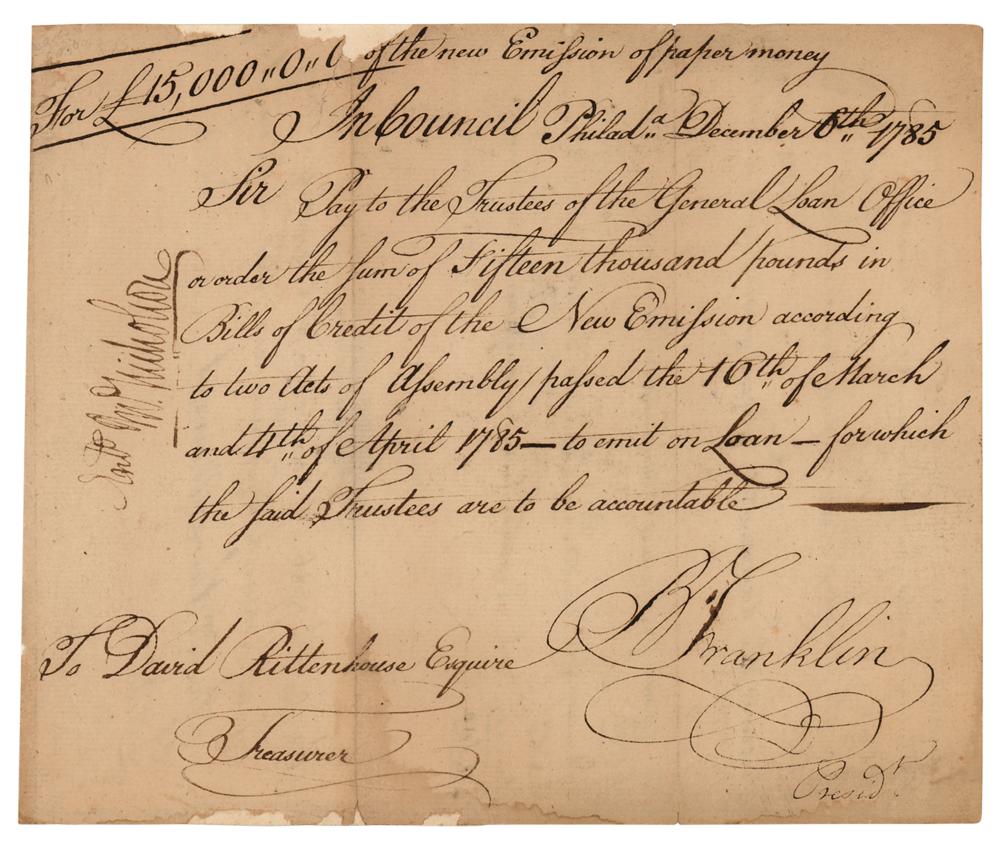 For £15,000"0"0 of the new Emission of paper money
In Council Philad"a December 6th" 1785
Sir Pay to the Trustees of the General Loan Office
or order the sum of Fifteen thousand pounds in
Bills of Credit of the New Emission according
to two Acts of Assembly / passed the 16th" of March
and 4th" of April 1785 — to emit on Loan — for which
the said Trustees are to be accountable
Entd Jno. Nicholson
B Franklin
To David Rittenhouse Esquire
Treasurer
Presidt